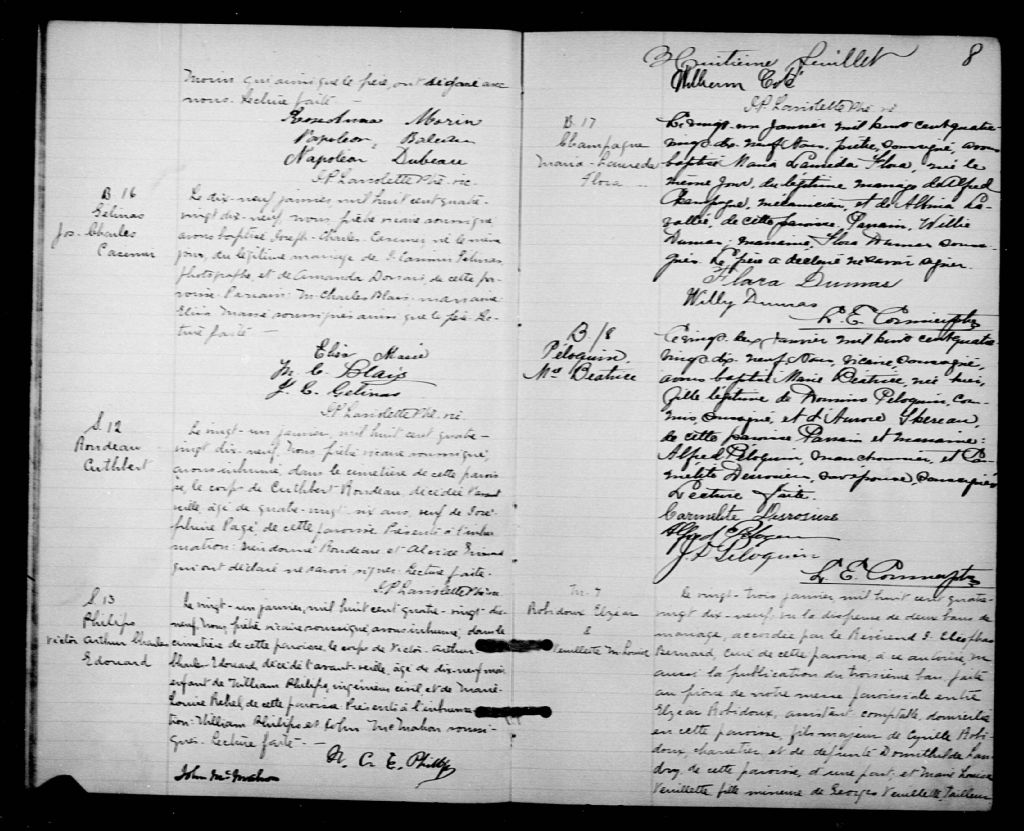 moins qui ainsi que le père, ont déclaré avec
nous. Lecture faite. —
Rose Anna Morin
Napoleon
Napoleon Dubeau
vic.
B. 16
Gélinas
Jos. Charles
Casimir
Le dix-neuf janvier, mil huit cent quatre-
vingt dix-neuf, nous prêtre vicaire soussigné,
avons baptisé Joseph-Charles-Casimir, né le même
jour, du légitime mariage de J. Casimir Gélinas
photographe et de Amanda de cette pa-
roisse. Parrain: M. Charles Blais marraine
Eliza soussignés ainsi que le père. Lec-
ture faite —
M. C. Blais
J. C. Gelinas
S. 12
Rondeau
Cuthbert
Le vingt-un janvier, mil huit cent quatre-
vingt dix-neuf, nous prêtre vicaire soussigné,
avons inhumé, dans le cimetière de cette parois-
se, le corps de Cuthbert Rondeau, décédé l'avant
veille, âgé de quatre-vingt six ans, veuf de José-
phine Pagé, de cette paroisse. Présents à l'inhu-
mation: Rondeau et
qui ont déclaré ne savoir signer. Lecture faite.
S. 13
Philips
Victor Arthur Charles
Edouard
Le vingt-un janvier, mil huit cent quatre-vingt dix-
neuf, nous, prêtre vicaire soussigné, avons inhumé, dans le
cimetière de cette paroisse, le corps de Victor-Arthur
Charles Edouard, décédé l'avant veille, âgé de dix-neuf mois
enfant de William Philips, ingénieur civil, et de Marie-
Louise de cette paroisse. Présents à l'inhuma-
tion: William Philips et John McMahon soussi-
gnés. Lecture faite. —
John McMahon
Huitième feuillet 8
Côté
B. 17
Champagne
Maria-Laureda
Flora
Le vingt-un janvier mil huit cent quatre-
vingt-dix-neuf Nous, prêtre, soussigné, avons
baptisé Maria Flora, née le
même jour, du légitime mariage de Alfred
Champagne, mécanicien, et de Albina La-
vallée, de cette paroisse, Parrain, Willie
Dumas; marraine, Flora Dumas soussi-
gnés. Le père a déclaré ne savoir signer.
Flora Dumas
Willy Dumas
L. E. Cormier ptr
B 18
Péloquin
Mie Béatrice
Le vingt deux janvier mil huit cent quatre
vingt dix neuf, Nous, vicaire, soussigné,
avons baptisé Marie Béatrice, née hier,
fille légitime de Peloquin, com-
mis, soussigné, et d'Aurore
de cette paroisse Parrain et marraine:
Alfred Péloquin, et Ca-
rmélite Desrosiers, son épouse, soussignés
Lecture faite.
Carmelite Desrosiers
Alfred Péloquin
Péloquin
L. E. Cormier ptr
M. 7
Robidoux Elzéar
&
Veuillette M. Louise
Le vingt-trois janvier, mil huit cent quatre-
vingt dix-neuf, vu la dispense de deux bans de
mariage, accordée par le Révérend
Bernard, curé de cette paroisse, à ce autorisé, vu
aussi la publication du troisième ban faite
au prône de notre messe paroissiale entre
Elzéar Robidoux, assistant comptable, domicilié
en cette paroisse, fils majeur de Cyrille Robi-
doux charretier et de défunte Domithilde Lan-
dry, de cette paroisse, d'une part; et Marie Louise
Veuillette fille mineure de Georges Veuillette, tailleur